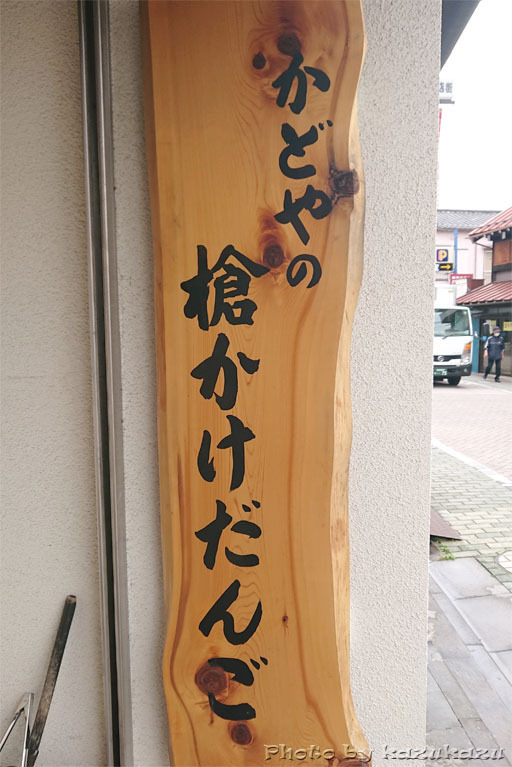 かどやの
槍かけだんご
P
Photo by kazukazu